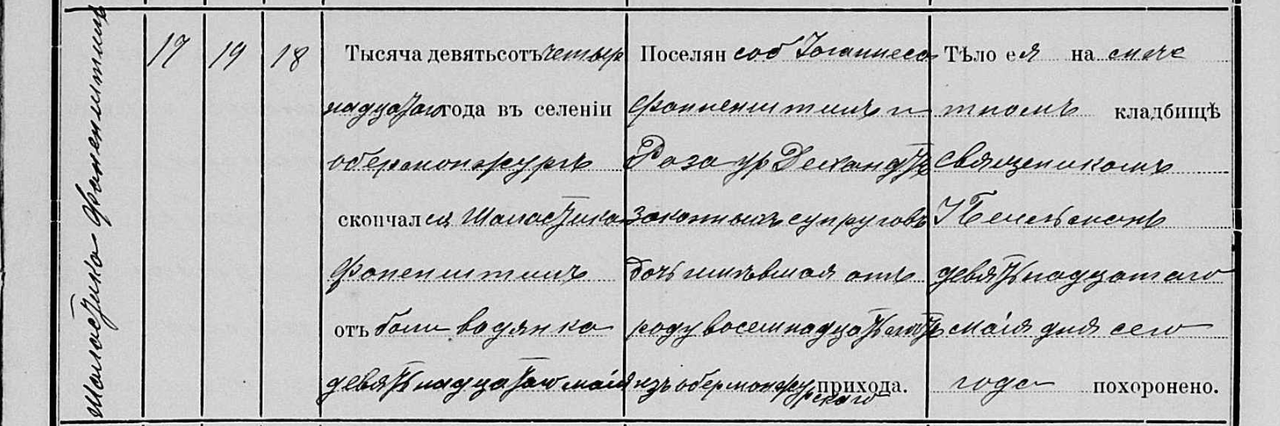 Малостика Фаненштиль
17 19 18
Тысяча девятьсотъ четыр
надцатаго года въ селеніи
обермонжурѣ
скончалея Малостика
Фаненштиль
отъ боли водянка
девятьнадцатаго маія
Поселян соб Іоаннеса
Фанненштиль и
Роза ур
законныхъ супруговъ
дочь имѣвшая отъ
роду восемнадцать
изъ обермонжурскаго прихода.
Тѣло ея на мѣс
тномъ кладбищѣ
священикомъ
девятьнадцатаго
маія дня сего
года похоронено.